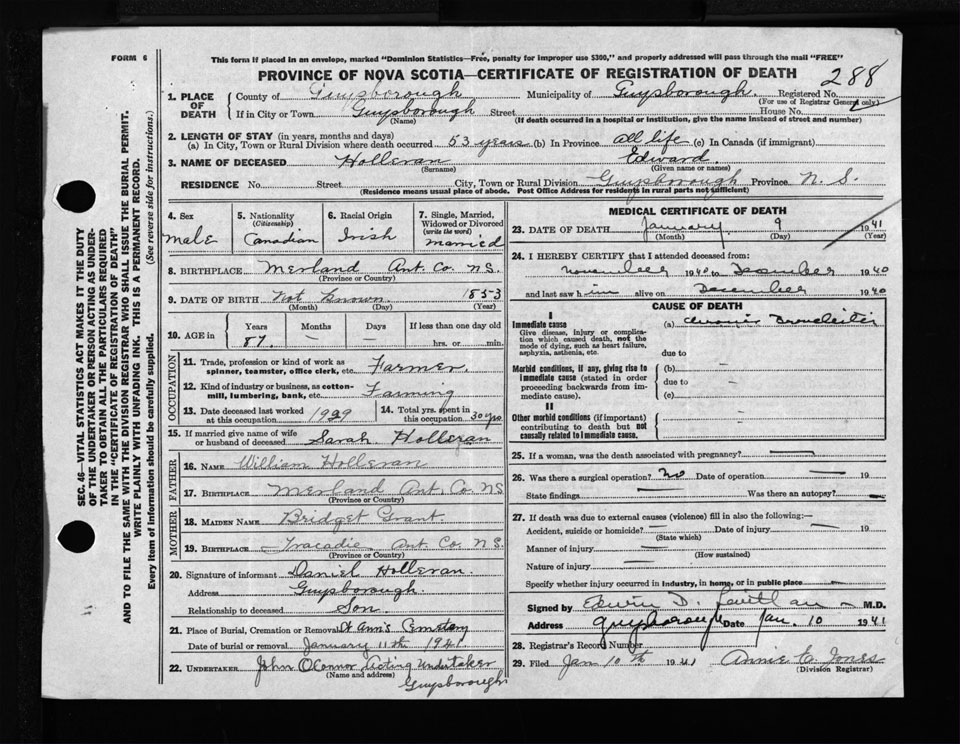 FORM 6
This form if placed in an envelope, marked "Dominion Statistics—Free, penalty for improper use $300," and properly addressed will pass through the mail "FREE"
PROVINCE OF NOVA SCOTIA—CERTIFICATE OF REGISTRATION OF DEATH
288
1. PLACE OF DEATH County of Guysborough Municipality of Guysborough. Registered No.
(For use of Registrar General only)
If in City or Town Guysborough Street House No.
(Name) (If death occurred in a hospital or institution, give the name instead of street and number)
2. LENGTH OF STAY (in years, months and days)
(a) In City, Town or Rural Division where death occurred 53 years (b) In Province all life (c) In Canada (if immigrant)
3. NAME OF DECEASED Holleran Edward.
(Surname) (Given name or names)
RESIDENCE No. Street City, Town or Rural Division Guysborough Province N. S.
(Residence means usual place of abode. Post Office Address for residents in rural parts not sufficient)
4. Sex male
5. Nationality (Citizenship) Canadian
6. Racial Origin Irish
7. Single, Married, Widowed or Divorced (write the word) married
8. BIRTHPLACE Merland Ant. Co. N.S.
(Province or Country)
9. DATE OF BIRTH Not Known 1853
(Month) (Day) (Year)
10. AGE in Years Months Days If less than one day old
87. — — hrs. or min.
OCCUPATION
11. Trade, profession or kind of work as spinner, teamster, office clerk, etc. Farmer.
12. Kind of industry or business, as cotton-mill, lumbering, bank, etc. Farming
13. Date deceased last worked at this occupation 1929
14. Total yrs. spent in this occupation 50 yrs
15. If married give name of wife or husband of deceased Sarah Holleran
FATHER
16. NAME William Holleran
17. BIRTHPLACE Merland Ant. Co. NS
MOTHER
18. MAIDEN NAME Bridget Grant.
19. BIRTHPLACE Tracadie Ant Co N.S.
(Province or Country)
20. Signature of informant Daniel Holleran.
Address Guysborough.
Relationship to deceased Son.
21. Place of Burial, Cremation or Removal St Ann's Cemetery
Date of burial or removal January 11th 1941
22. UNDERTAKER John OConnor Acting Undertaker
(Name and address)
Guysborough
MEDICAL CERTIFICATE OF DEATH
23. DATE OF DEATH January 9 1941
(Month) (Day) (Year)
24. I HEREBY CERTIFY that I attended deceased from:
November 1940 to December 1940
and last saw him alive on December 1940
CAUSE OF DEATH
I
Immediate cause
Give disease, injury or complication which caused death, not the mode of dying, such as heart failure, asphyxia, asthenia, etc.
(a) Chronic Bronchitis
due to —
Morbid conditions, if any, giving rise to immediate cause (stated in order proceeding backwards from immediate cause).
(b) —
due to —
(c)
II
Other morbid conditions (if important) contributing to death but not causally related to immediate cause.
25. If a woman, was the death associated with pregnancy? —
26. Was there a surgical operation? No Date of operation — 19
State findings — Was there an autopsy? —
27. If death was due to external causes (violence) fill in also the following:—
Accident, suicide or homicide? — Date of injury — 19
(State which)
Manner of injury —
(How sustained)
Nature of injury —
Specify whether injury occurred in industry, in home, or in public place —
Signed by Edwin D. M.D.
Address Guysborough Date Jan. 10 1941
28. Registrar's Record Number
29. Filed Jan 10th 1941 Annie C. Jones
(Division Registrar)
SEC. 46—VITAL STATISTICS ACT MAKES IT THE DUTY
OF THE UNDERTAKER OR PERSON ACTING AS UNDER-
TAKER TO OBTAIN ALL THE PARTICULARS REQUIRED
IN THE "CERTIFICATE OF REGISTRATION OF DEATH"
AND TO FILE THE SAME WITH THE DIVISION REGISTRAR WHO SHALL ISSUE THE BURIAL PERMIT.
WRITE PLAINLY WITH UNFADING INK. THIS IS A PERMANENT RECORD.
Every item of information should be carefully supplied. (See reverse side for instructions.)